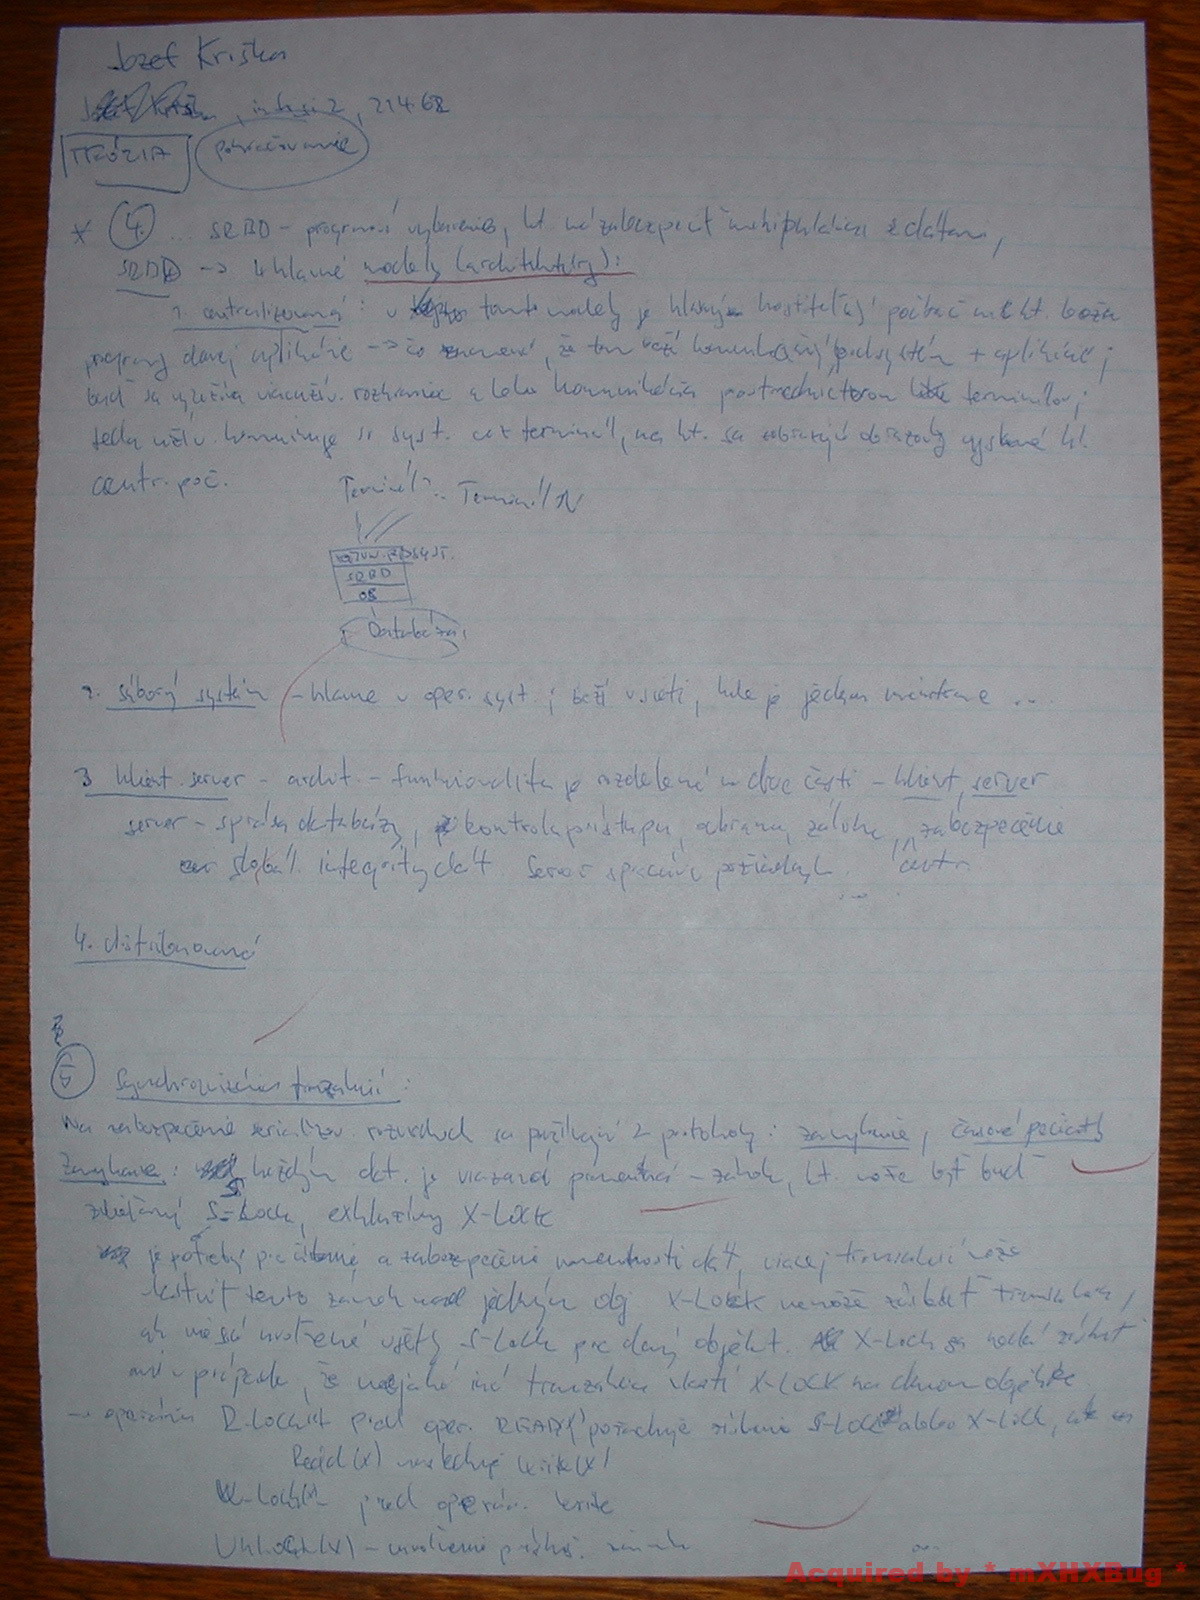 Jozef Kriška
21468
TEÓRIA pokračovanie
* 4. ... SRBD - programové vybavenie, kt. má zabezpečiť manipuláciu s dátami,
SRBD -> 4 hlavné modely (architektúry):
1. centralizovaná: v tomto modely je hlavným hostiteľský počítač na kt. bežia
programy danej aplikácie -> čo znamená, že tam beží komunikačný podsystém + aplikácie;
buď sa využíva rozhranie a lebo komunikácia prostredníctvom terminálov;
teda užív. komunikuje so syst. cez terminál, na kt. sa zobrazujú obrazovky vyslané
centr. poč.
Terminál 1 .. Terminál N
KOMUN. PODSYST.
SRBD
OS
Databáza
2. súborový systém - hlavne v oper. syst.; beží v sieti, kde je jeden ...
3 klient server - archit. - funkcionalita je rozdelená na dve časti - klient, server
server - správa databázy, kontrola prístupu, ochrana, záloha, zabezpečenie
globál. integrity dát Server spracúva požiadavky centr.
...
4. distribuovaná
5 Synchronizácia tranzakcií:
Na zabezpečenie serializov. rozvrhov sa používajú 2 protokoly: zamykanie, časové pečiatky
Zamykanie: každým dat. je viazaná premenná - zámok, kt. može byť buď
zdieľaný S-Lock, exkluzívny X-Lock
je potrebný pre čítanie a zabezpečenie nemennosti dát, viacej tranzakcií može
vlastniť tento zámok nad jedným obj X-Lock nemôže získať tranzakcia,
ak nie sú uvoľnené všetky S-Lock pre daný objekt. X-Lock sa nedá získať
ani v prípade, že nejaká iná tranzakcia vlastní X-LOCK na danom objekte
-> operácia R-Lock pred oper. READ požaduje získanie S-LOCK alebo X-Lock, ak
Read(x) nasleduje write(x)
W-Lock(x) pred operáciou write
UNLOCK(x) - uvoľnenie zámku ...
Acquired by * mXHXBug *